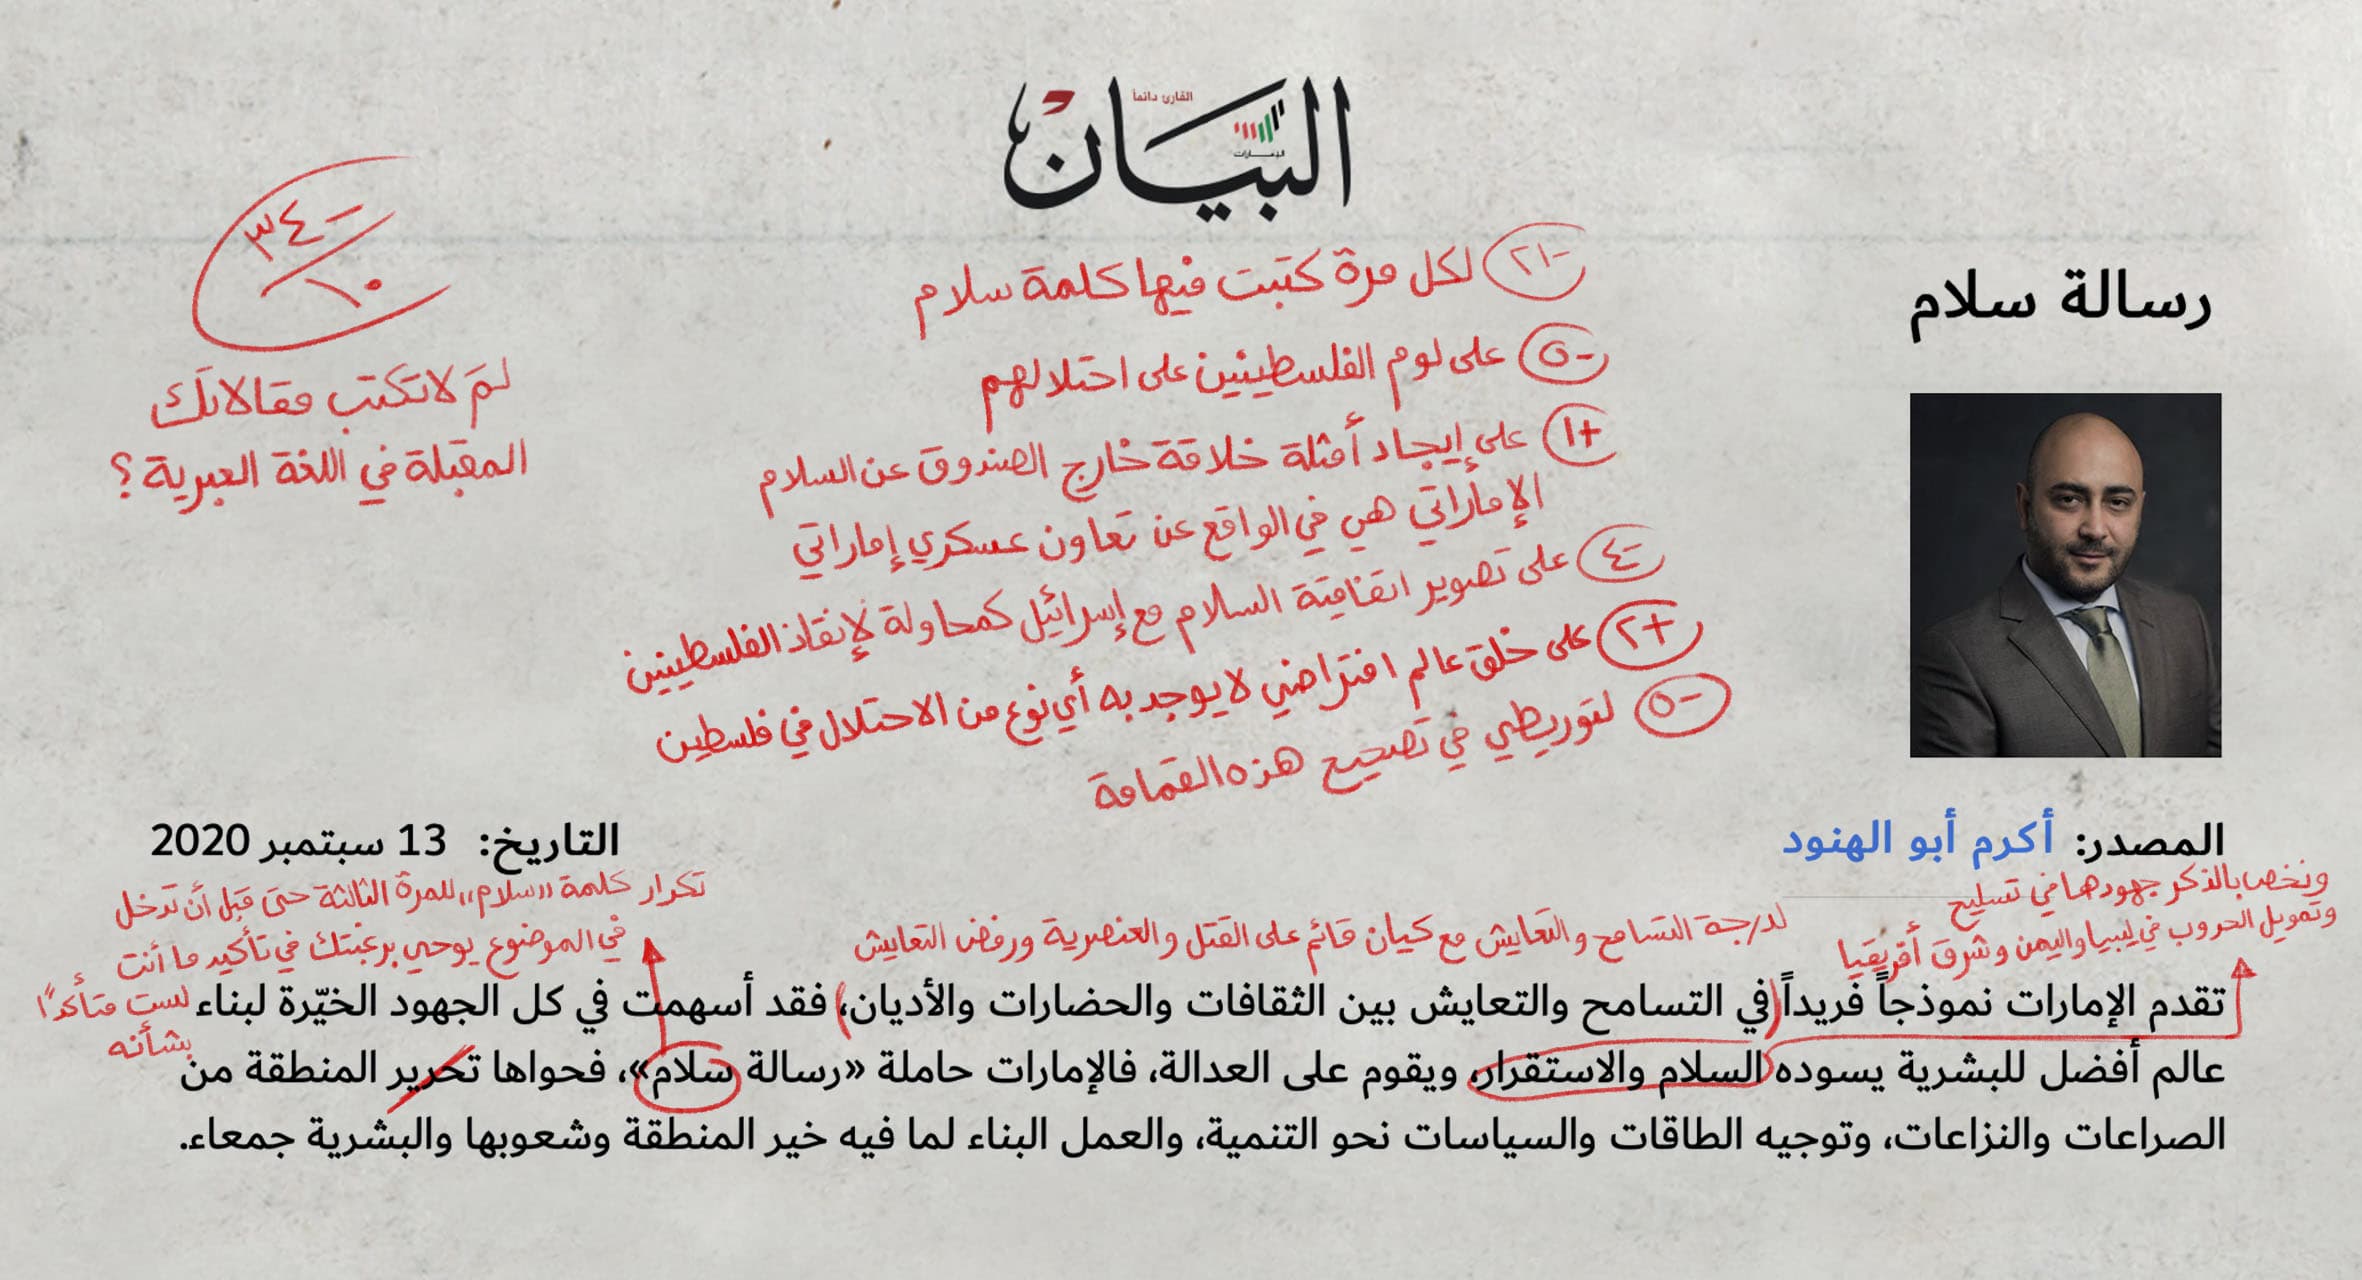 القارئ دائماً
البيان
الإمارات
رسالة سلام
-٣٤
١٠
لمَ لا تكتب مقالاتك
المقبلة في اللغة العبرية؟
-٢١ لكل مرة كتبت فيها كلمة سلام
-٥ على لوم الفلسطينيين على احتلالهم
+١ على إيجاد أمثلة خلاقة خارج الصندوق عن السلام
الإماراتي هي في الواقع عن تعاون عسكري إماراتي
-٤ على تصوير اتفاقية السلام مع إسرائيل كمحاولة لإنقاذ الفلسطينيين
+٢ على خلق عالم افتراضي لا يوجد به أي نوع من الاحتلال في فلسطين
-٥ لتوريطي في تصحيح هذه القمامة
المصدر: أكرم أبو الهنود
التاريخ: 13 سبتمبر 2020
ونخص بالذكر جهودها في تسليح
وتمويل الحروب في ليبيا واليمن وشرق أفريقيا
لدرجة التسامح والتعايش مع كيان قائم على القتل والعنصرية ورفض التعايش
تكرار كلمة «سلام» للمرة الثالثة حتى قبل أن تدخل
في الموضوع يوحي برغبتك في تأكيد ما أنت
لست متأكدًا
بشأنه
تقدم الإمارات نموذجاً فريداً في التسامح والتعايش بين الثقافات والحضارات والأديان، فقد أسهمت في كل الجهود الخيّرة لبناء
عالم أفضل للبشرية يسوده السلام والاستقرار، ويقوم على العدالة، فالإمارات حاملة «رسالة سلام»، فحواها تحرير المنطقة من
الصراعات والنزاعات، وتوجيه الطاقات والسياسات نحو التنمية، والعمل البناء لما فيه خير المنطقة وشعوبها والبشرية جمعاء.